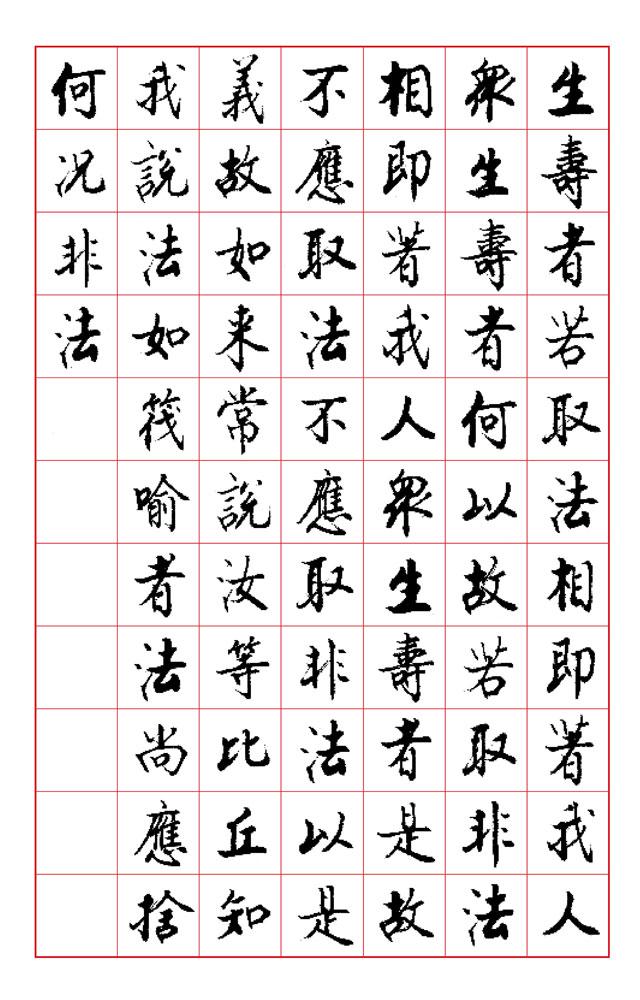 生壽者若取法相即著我人
衆生壽者何以故若取非法
相即著我人衆生壽者是故
不應取法不應取非法以是
義故如来常說汝等比丘知
我說法如筏喻者法尚應捨
何况非法